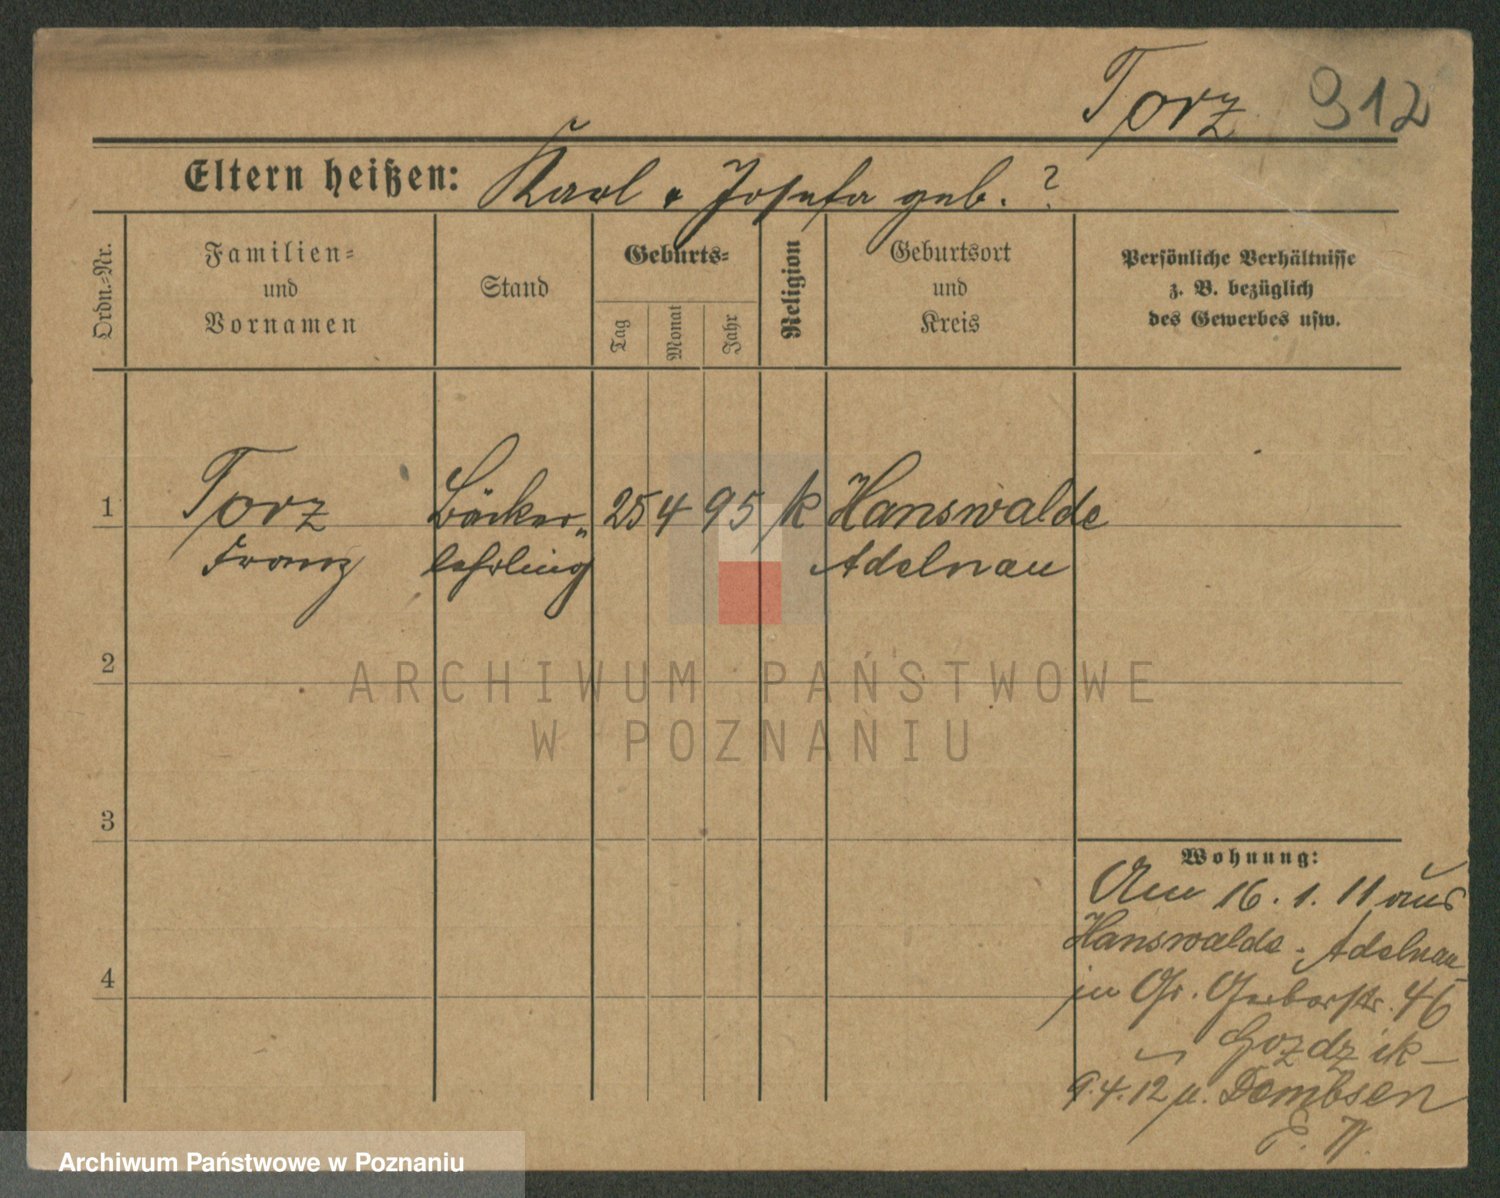 Torz 912
Eltern heißen: Karl & Josefa geb. ?
Ordn.=Nr.
Familien=
und
Vornamen
Stand
Geburts=
Tag
Monat
Jahr
Religion
Geburtsort
und
Kreis
Persönliche Verhältnisse
z. B. bezüglich
des Gewerbes usw.
1 Torz Bäcker- 25 4 95 k Hanswalde
Franz lehrling Adelnau
2
ARCHIWUM PAŃSTWOWE
W POZNANIU
3
Wohnung:
Am 16. 1. 11 aus
Hanswalde - Adelnau
4
in Gr. Gerberstr. 46
Gozdzik
9.4.12 n. Dembsen
E. W.
Archiwum Państwowe w Poznaniu